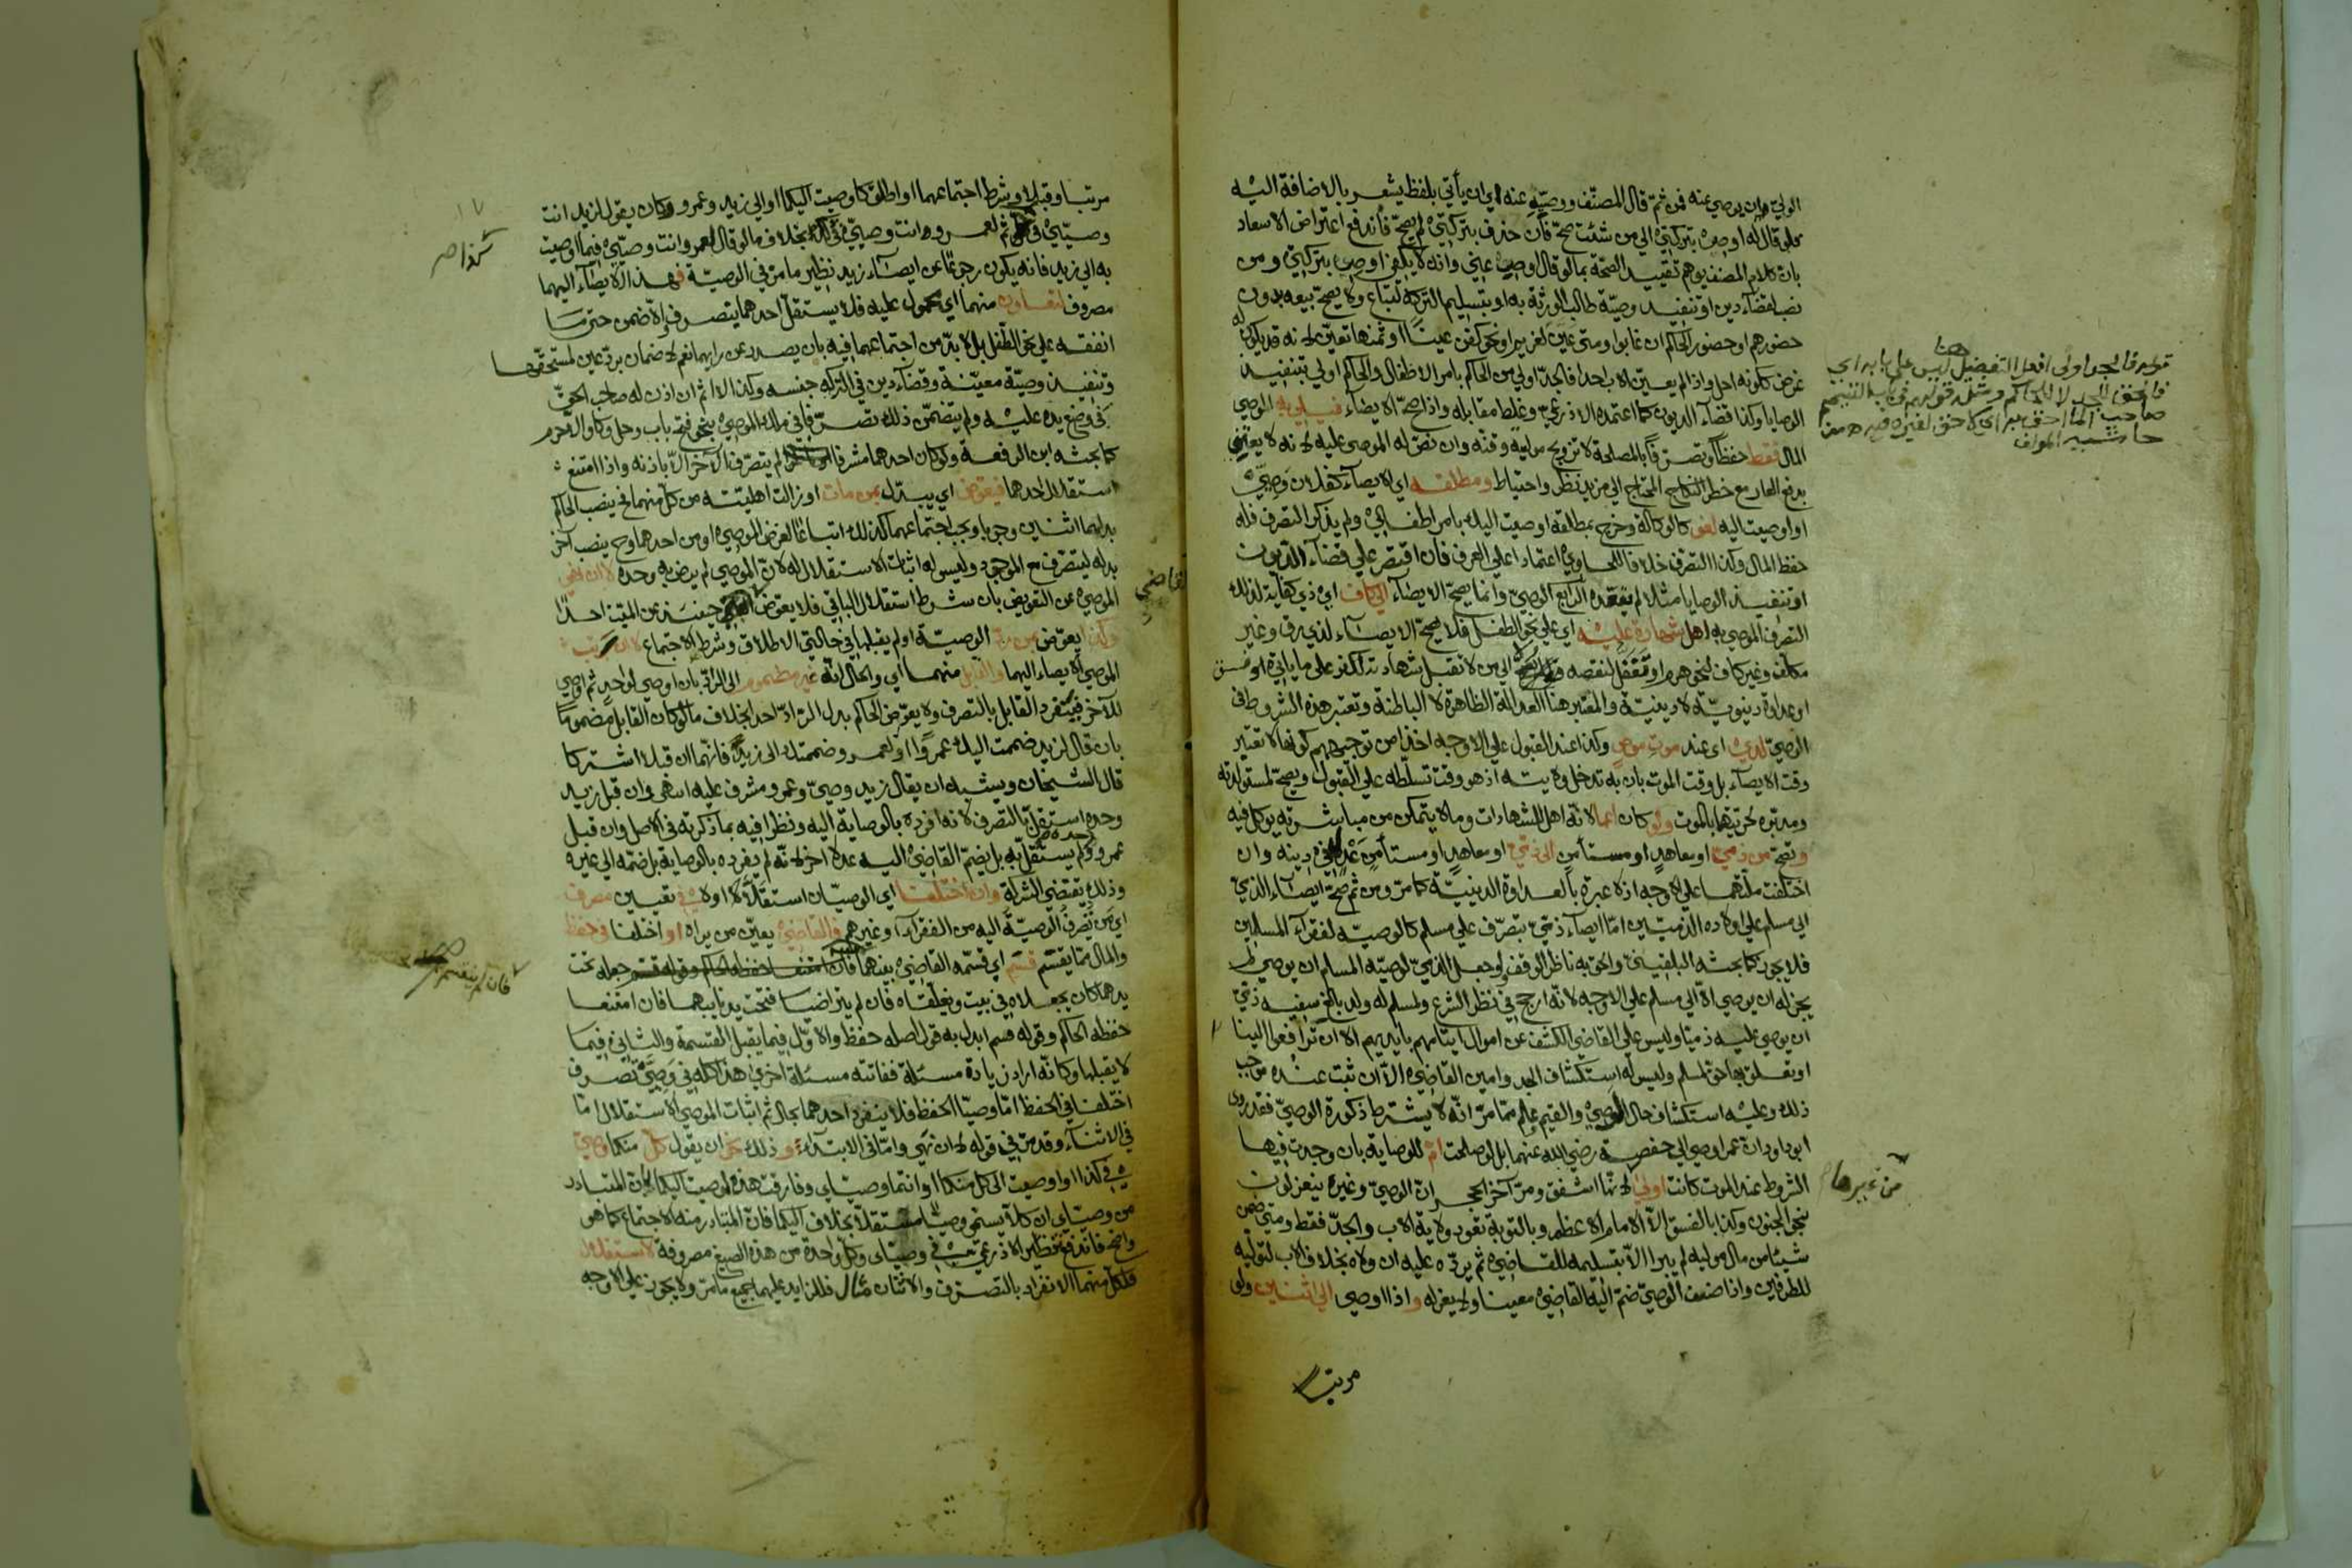 الولي وان يوصي عنه فمن ثم قال المصنف ووصية عنه اي ان يأتي بلفظ يشعر بالاضافة اليه
فلو قال له اوص بتركتي الي من شئت صح فان حذف بتركتي لم يصح فاندفع اعتراض الاسعاد
بان كلام المصنف يوهم تقييد الصحة بما لو قال اوص عني وانه لا يكفي اوص بتركتي ومن
نصب لقضاء دين او تنفيذ وصية طالب الورثة به او بتسليم التركة لتباع ولا يصح بيعه بدون
حضورهم او حضور الحاكم ان غابوا ومتى عين لغريم او نحو كفن عينا او ثمنها تعين لانه قد يكون له
غرض ككونه احل واذا لم يعين الاب احدا فالجد اولي من الحاكم بامر الاطفال والحاكم اولي بتنفيذ
الوصايا وكذا قضاء الديون كما اعتمده الاذرعي وغلط مقابله واذا صح الايصاء فيلي به الموصي
المال فقط حفظا وتصرفا بالمصلحة لا تزويج موليه وقنه وان نص له الموصي عليه لانه لا يعتني
بدفع العار مع خطر النكاح المحتاج الي مزيد نظر واحتياط ومطلقه اي الايصاء كفلان وصيي
او اوصيت اليه لغو كالوكالة وخرج بمطلقه اوصيت اليك بامر اطفالي ولم يذكر التصرف فله
حفظ المال وكذا التصرف خلافا للحاوي اعتمادا علي العرف فان اقتصر علي قضاء الديون
او تنفيذ الوصايا مثلا لم يتعده الرابع الوصي وانما يصح الايصاء الي كاف اي ذي كفاية لذلك
التصرف الموصي به اهل شهادة عليه اي علي نحو الطفل فلا يصح الايصاء لذي رق وغير
مكلف وغير كاف لنحو هرم او تغفل لنقصه الي من لا تقبل شهادته لكفر علي ما ياتي او فسق
او عداوة دنيوية لا دينية والمعتبر هنا العدالة الظاهرة لا الباطنة وتعتبر هذه الشروط في
الوصي لدى اي عند موت موص وكذا عند القبول علي الاوجه اخذا من توجيههم كونها لا تعتبر
وقت الايصاء بل وقت الموت بان به تدخل ولايته اذ هو وقت تسلطه علي القبول ويصح لمستولدته
ومدبره لحريتهما بالموت ولو كان اعمي لانه اهل للشهادات وما لا يتمكن من مباشرته يوكل فيه
وتصح من ذمي او معاهد او مستأمن الي ذمي او معاهد او مستأمن عدل في دينه وان
اختلفت ملتهما علي الاوجه اذ لا عبرة بالعداوة الدينية كما مر ومن ثم صح ايصاء الذمي
الي مسلم علي اولاده الذميين اما ايصاء ذمي بتصرف علي مسلم كالوصية لفقراء المسلمين
فلا يجوز كما بحثه البلقيني والحق به ناظر الوقف ولو جعل الذمي لوصيه المسلم ان يوصي لم
يجز له ان يوصي الا الي مسلم علي الاوجه لانه ارجح في نظر الشرع ولمسلم له ولد بالغ سفيه ذمي
ان يوصي عليه ذميا وليس علي القاضي الكشف عن اموال ايتامهم بايديهم الا ان ترافعوا الينا
او تعلق بها حق لمسلم وليس له استكشاف الجد وامين القاضي الا ان ثبت عنده موجب
ذلك وعليه استكشاف حال الوصي والقيم علم مما مر انه لا يشترط ذكورة الوصي فقد روى
ابو داود ان عمر اوصي الي حفصة رضي الله عنهما بل لو صلحت ام للوصاية بان وجدت فيها
الشروط عند الموت كانت اولى لانها اشفق ومر آخر الحجر ان الوصي وغيره ينعزلون
بنحو الجنون وكذا بالفسق الا الامام الاعظم وبالتوبة تعود ولاية الاب والجد فقط ومتي ضمن
شيئا من مال موليه لم يبرا الا بتسليمه للقاضي ثم يرده عليه ان ولاه بخلاف الاب لتوليه
للطرفين واذا ضعف الوصي ضم اليه القاضي معينا ولم يعزله واذا اوصي الي اثنين ولو
مرتبا
قوله فالجد اولى افعل التفضيل هنا ليس علي بابه اي
فالحق للجد لا للحاكم ومثل قولهم في باب التيمم
صاحب الماء احق به اي لا حق لغيره فيه من
حاشية المولف
من غيرها
مرتبا وقبلا وشرط اجتماعهما او اطلق كاوصيت اليكما او الي زيد وعمرو وكان يقول لزيد انت
وصيي في ثم لعمرو وانت وصيي في بخلاف ما لو قال لعمرو انت وصيي فيما اوصيت
به الي زيد فانه يكون رجوعا عن ايصاء زيد نظير ما مر في الوصية فهذا الايصاء اليهما
مصروف لتعاون منهما اي محمول عليه فلا يستقل احدهما بتصرف والا ضمن حتى ما
انفقه علي نحو الطفل بل لا بد من اجتماعهما فيه بان يصدر عن رايهما نعم لا ضمان برد عين لمستحقها
وتنفيذ وصية معينة وقضاء دين في التركة جنسه وكذا الا اثم ان اذن له صاحب الحق
في وضع يده عليه ولم يتضمن ذلك تصرفا في ملك الموصي بنحو فتح باب وحل وكاء والا حرم
كما بحثه ابن الرفعة ولو كان احدهما مشرفا لم يتصرف الاخر الا باذنه واذا امتنع
استقلال احدهما فيعوض اي يبدل بمن مات او زالت اهليته من كل منهما فينصب الحاكم
بدلهما اثنين وجوبا ويجب اجتماعهما كذلك اتباعا لغرض الموصي او من احدهما وح ينصب آخر
بدله ليتصرف مع الموجود وليس له اثبات الاستقلال له لان الموصي لم يرض به وحده لا ان نهي
الموصي عن التعويض بان شرط استقلال الباقي فلا يعوض القاضي حينئذ عن الميت احدا
وكذا يعوض عن رد الوصية او لم يقبلها في حالتي الاطلاق وشرط الاجتماع لا ان رتب
الموصي الايصاء اليهما والقابل منهما اي والحال انه غير مضموم الى الراد بان اوصي لواحد ثم اوصي
للآخر فينفرد القابل بالتصرف ولا يعوض الحاكم بدل الراد احدا بخلاف ما لو كان القابل مضموما
بان قال لزيد ضممت اليك عمروا او لعمرو ضممتك الى زيد فانهما ان قبلا اشتركا
قال الشيخان ويشبه ان يقال زيد وصي وعمرو مشرف عليه انتهى وان قبل زيد
وحده استقل بالتصرف لانه افرده بالوصاية اليه ونظرا فيه بما ذكرته في الاصل وان قبل
عمرو وحده لم يستقل به بل يضم القاضي اليه عدلا آخر لانه لم يفرده بالوصاية بل ضمه الي غيره
وذلك يقتضي الشركة وان اختلفا اي الوصيان استقلا او لا في تعيين مصرف
اي من تصرف الوصية اليه من الفقراء وغيرهم فالقاضي يعين من يراه او اختلفا في حفظ
والمال مما يقسم قسم اي قسمه القاضي بينهما فان امتنعا حفظه الحاكم وقوله قسم جعله تحت
يدهما كان يجعلاه في بيت ويغلقاه فان لم يتراضيا فتحت يد نايبهما فان امتنعا
حفظه الحاكم وقوله قسم ابدل به قول اصله حفظ والاول فيما يقبل القسمة والثاني فيما
لا يقبلها وكانه اراد زيادة مسئلة ففاتته مسئلة اخري هذا كله في وصيي تصرف
اختلفا في الحفظ اما وصيا الحفظ فلا ينفرد احدهما بحال ثم اثبات الموصي الاستقلال اما
في الاثناء وقد مر في قوله لا ان نهي واما في الابتداء وذلك نحو ان يقول كل منكما وصيي
في كذا او اوصيت الى كل منكما او انتما وصياي وفارقت هذه اوصيت اليكما بان المتبادر
من وصياي ان كلا يسمي وصيا مستقلا بخلاف اليكما فان المتبادر منه الاجتماع كما هو
واضح فاندفع تنظير الاذرعي في وصياي وكل واحدة من هذه الصيغ مصروفة لاستقلال
فلكل منهما الانفراد بالتصرف والاثنان مثال فللزايد عليهما جميع ما مر ولا يجوز علي الاوجه
كذا صر
القاضي
فان لم ينقسم